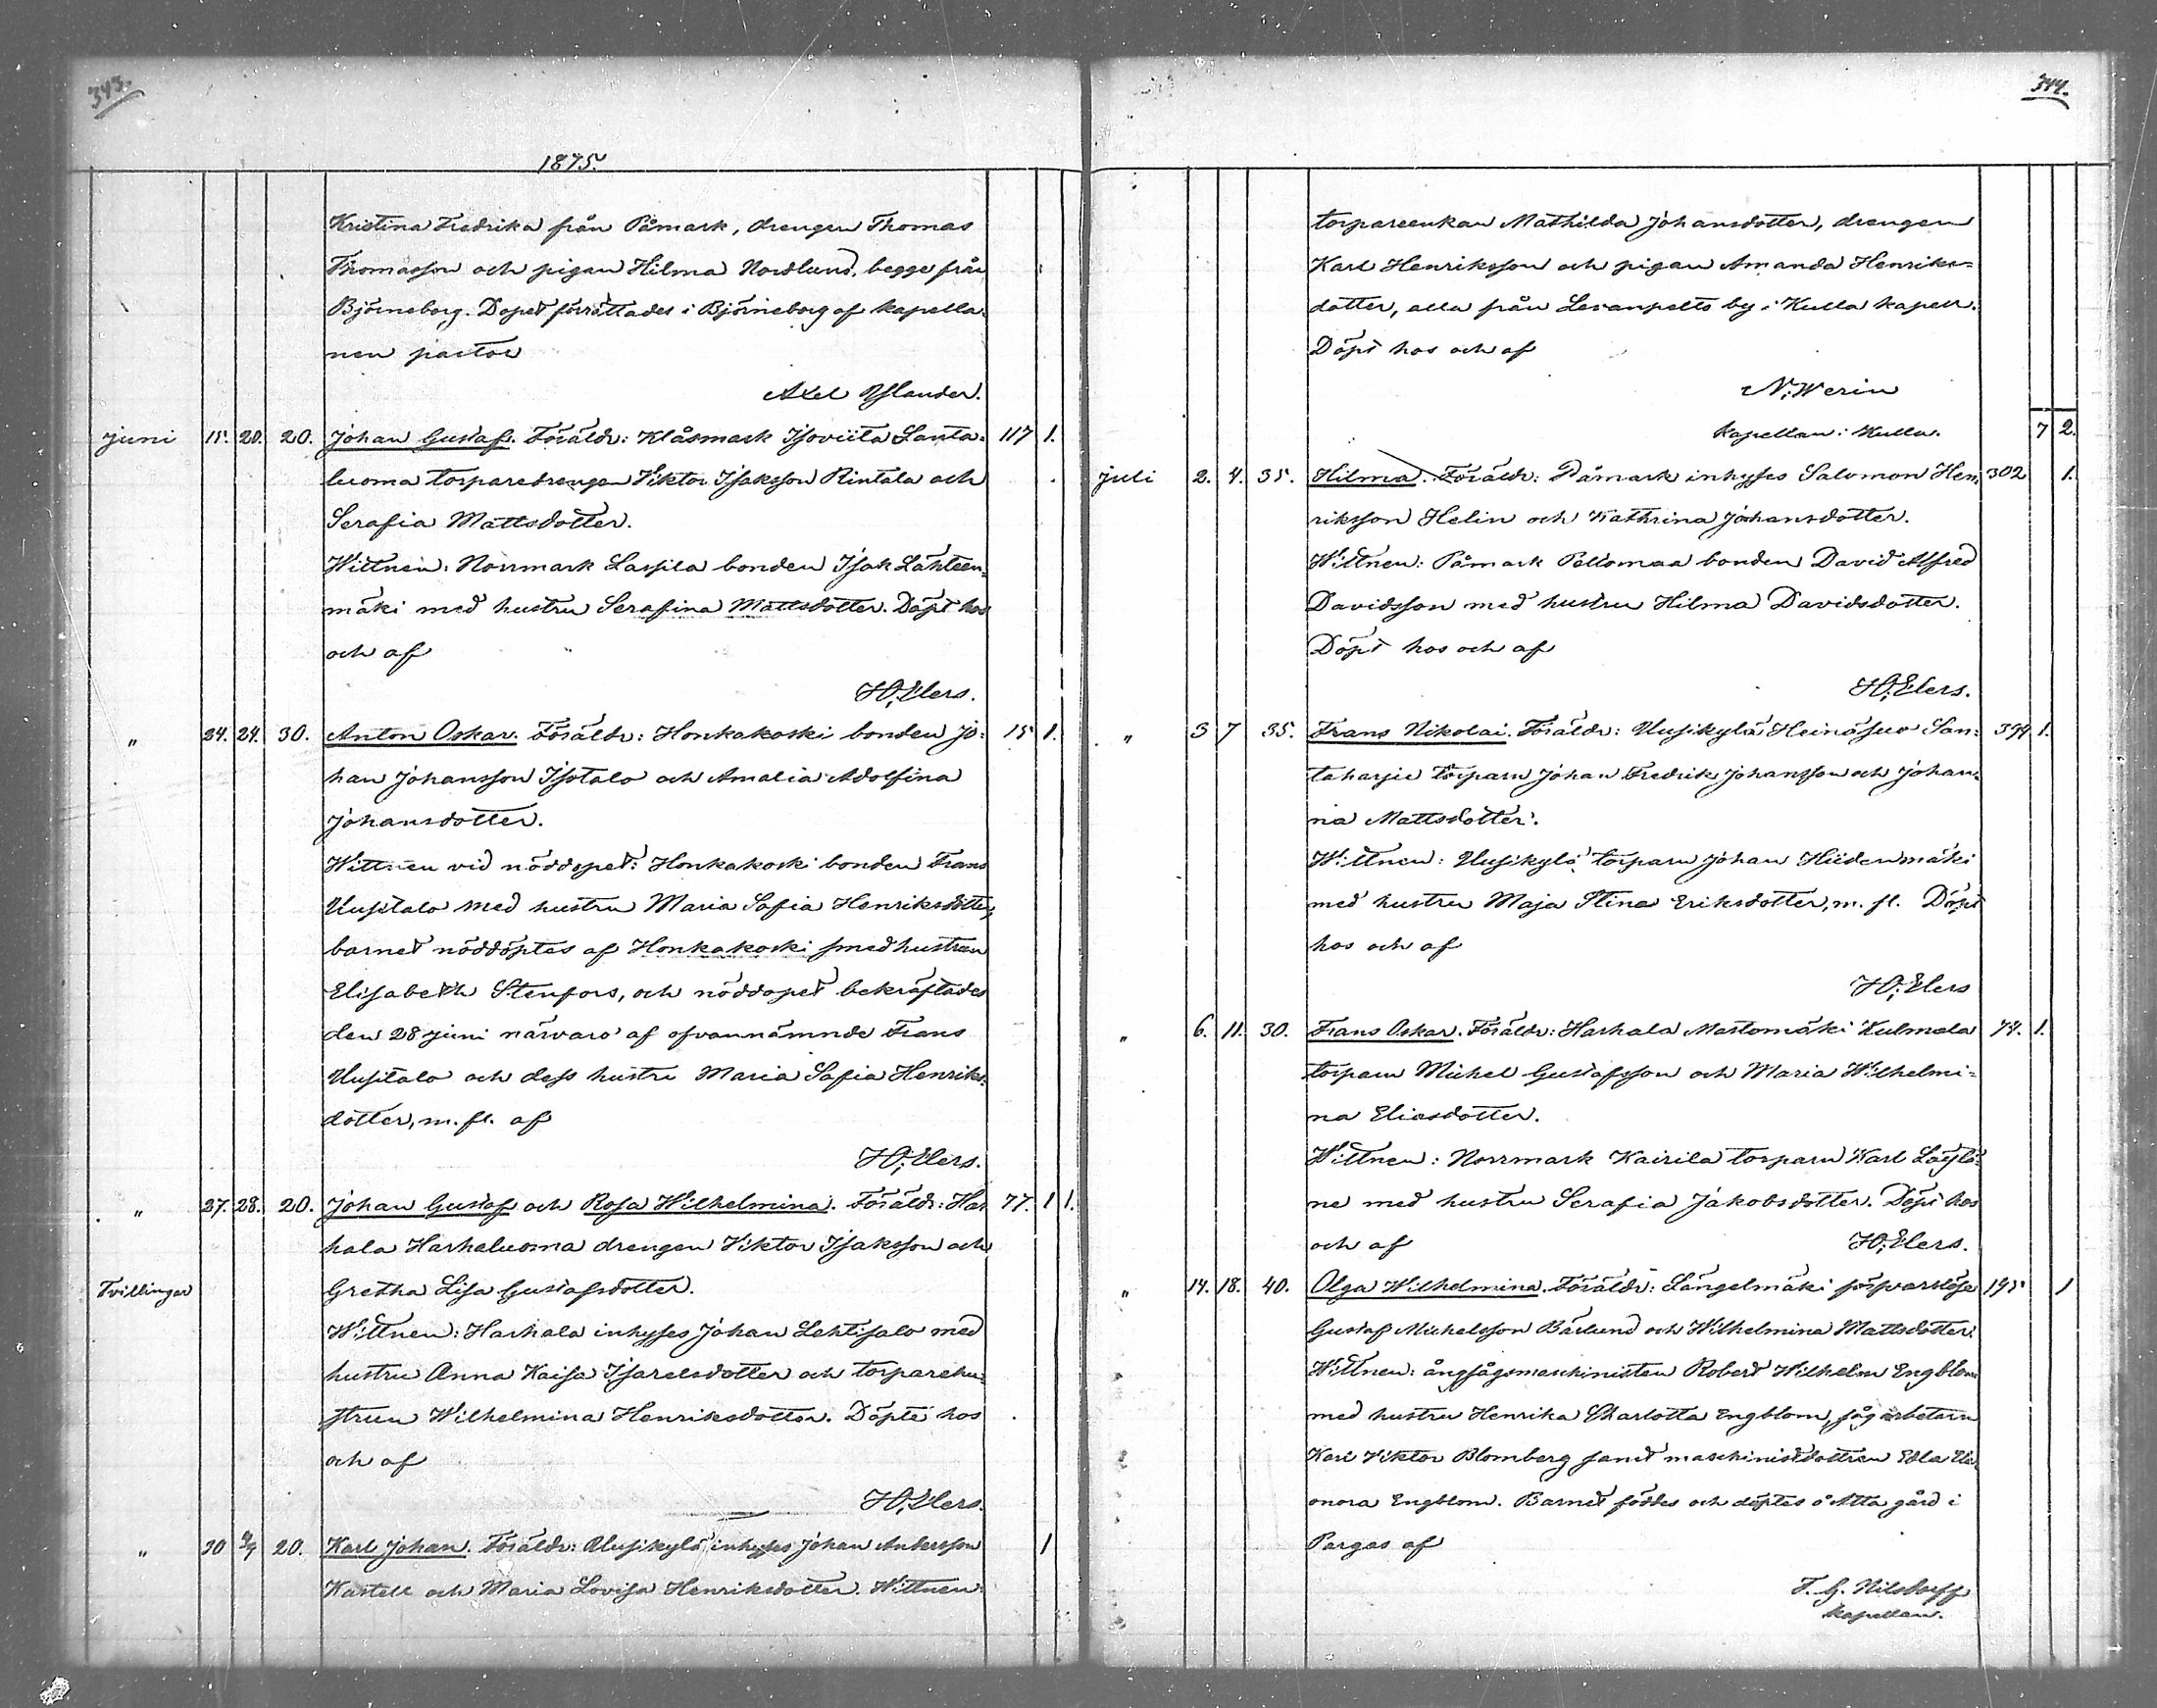 343.
1875.
Kristina Fredrika från Påmark, drengen Thomas
Thomasson och pigan Hilma Nordlund, begge från
Björneborg. Dopet förrättades i Björneborg af kapella-
nen pastor
Axel
juni 15. 20. 20. Johan Gustaf. Föräldr: Klåsmark Isoviita Lanta- 117 1.
luoma torparedrengen Viktor Isaksson Rintala och
Serafia Mattsdotter.
Wittnen: Norrmark Lassila bonden Isak Lähteen-
mäki med hustru Serafina Mattsdotter. Döpt hos
och af
H. Elers.
" 24. 24. 30. Anton Oskar. Föräldr: Honkakoski bonden Jo- 15 1.
han Johansson Isotalo och Amalia Adolfina
Johansdotter.
Wittnen vid nöddopet: Honkakoski bonden Frans
Uusitalo med hustru Maria Sofia Henriksdotter,
barnet nöddöptes af Honkakoski smedhustrun
Elisabeth Stenfors, och nöddopet bekräftades
den 28 juni närvaro af ofvannämnde Frans
Uusitalo och dess hustru Maria Sofia Henriks-
dotter, m. fl. af
H. Elers.
" 27. 28. 20. Johan Gustaf och Rosa Wilhelmina. Föräldr: Har 77. 1 1.
hala Harhaluoma drengen Viktor Isaksson och
Tvillingar Gretha Lisa Gustafsdotter.
Wittnen: Harhala inhyses Johan Lehtisalo med
hustru Anna Kaisa Isarelsdotter och torparehu-
strun Wilhelmina Henriksdotter. Döpte hos
och af
H. Elers.
" 30 4/7 20. Karl Johan. Föräldr: Uusikylä inhyses Johan Andersson 1
Kastell och Maria Lovisa Henriksdotter. Wittnen:
344.
torpareenkan Mathilda Johansdotter, drengen
Karl Henriksson och pigan Amanda Henriks-
dotter, alla från Levanpelto by i Kulla kapell.
Döpt hos och af
N. Werin
kapellan i Kulla. 7 2.
juli 2. 4. 35. Hilma. Föräldr: Påmark inhyses Salomon Hen- 302 1.
riksson Helin och Kathrina Johansdotter.
Wittnen: Påmark Peltomaa bonden David Alfred
Davidsson med hustru Hilma Davidsdotter.
Döpt hos och af
H. Elers.
" 3 7 35. Frans Nikolai. Föräldr: Uusikylä Heinäsuo San- 394 1.
taharju torparn Johan Fredrik Johansson och Johan-
na Mattsdotter.
Wittnen: Uusikylä torparn Johan Hiidenmäki
med hustru Maja Stina Eriksdotter, m. fl. Döpt
hos och af
H. Elers
" 6. 11. 30. Frans Oskar. Föräldr: Harhala Mastomäki Kulmala 74. 1.
torparn Michel Gustafsson och Maria Wilhelmi-
na Eliasdotter.
Wittnen: Norrmark Kairila torparn Karl
ne med hustru Serafia Jakobsdotter. Döpt hos
och af H. Elers.
" 14. 18. 40. Olga Wilhelmina. Föräldr: Längelmäki försvarslöse 195 1
Gustaf Michelsson Bärlund och Wilhelmina Mattsdotter.
Wittnen: ångsågsmaschinisten Robert Wilhelm Engblom
med hustru Henrika Charlotta Engblom, sågarbetarn
Karl Viktor Blomberg samt maschinistdottren Edla Ele-
onora Engblom. Barnet föddes och döptes å Atta gård i
Pargas af
kapellan.